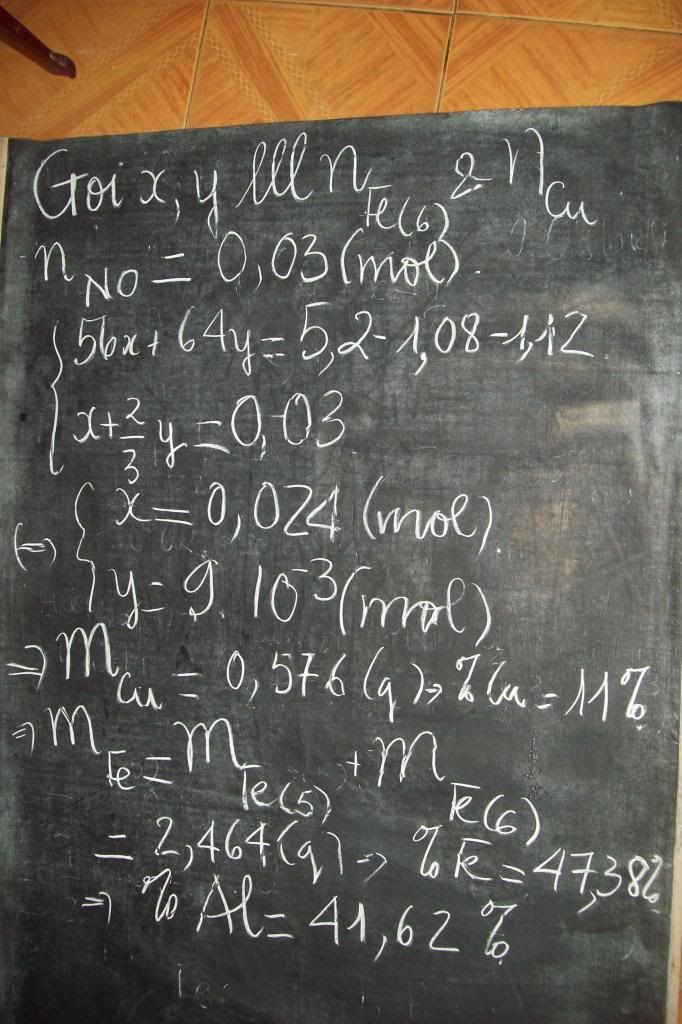 Gọi x, y lll n Fe(6) & n Cu
n NO = 0,03 (mol).
56x + 64y = 5,2 - 1,08 - 1,12
x + 2/3 y = 0,03
(=) x = 0,024 (mol)
y = 9 10^-3 (mol)
=> m Cu = 0,576 (g) -> % Cu = 11%
=> m Fe = m Fe(5) + m Fe(6)
= 2,464 (g) -> % Fe = 47,38%
=> % Al = 41,62 %